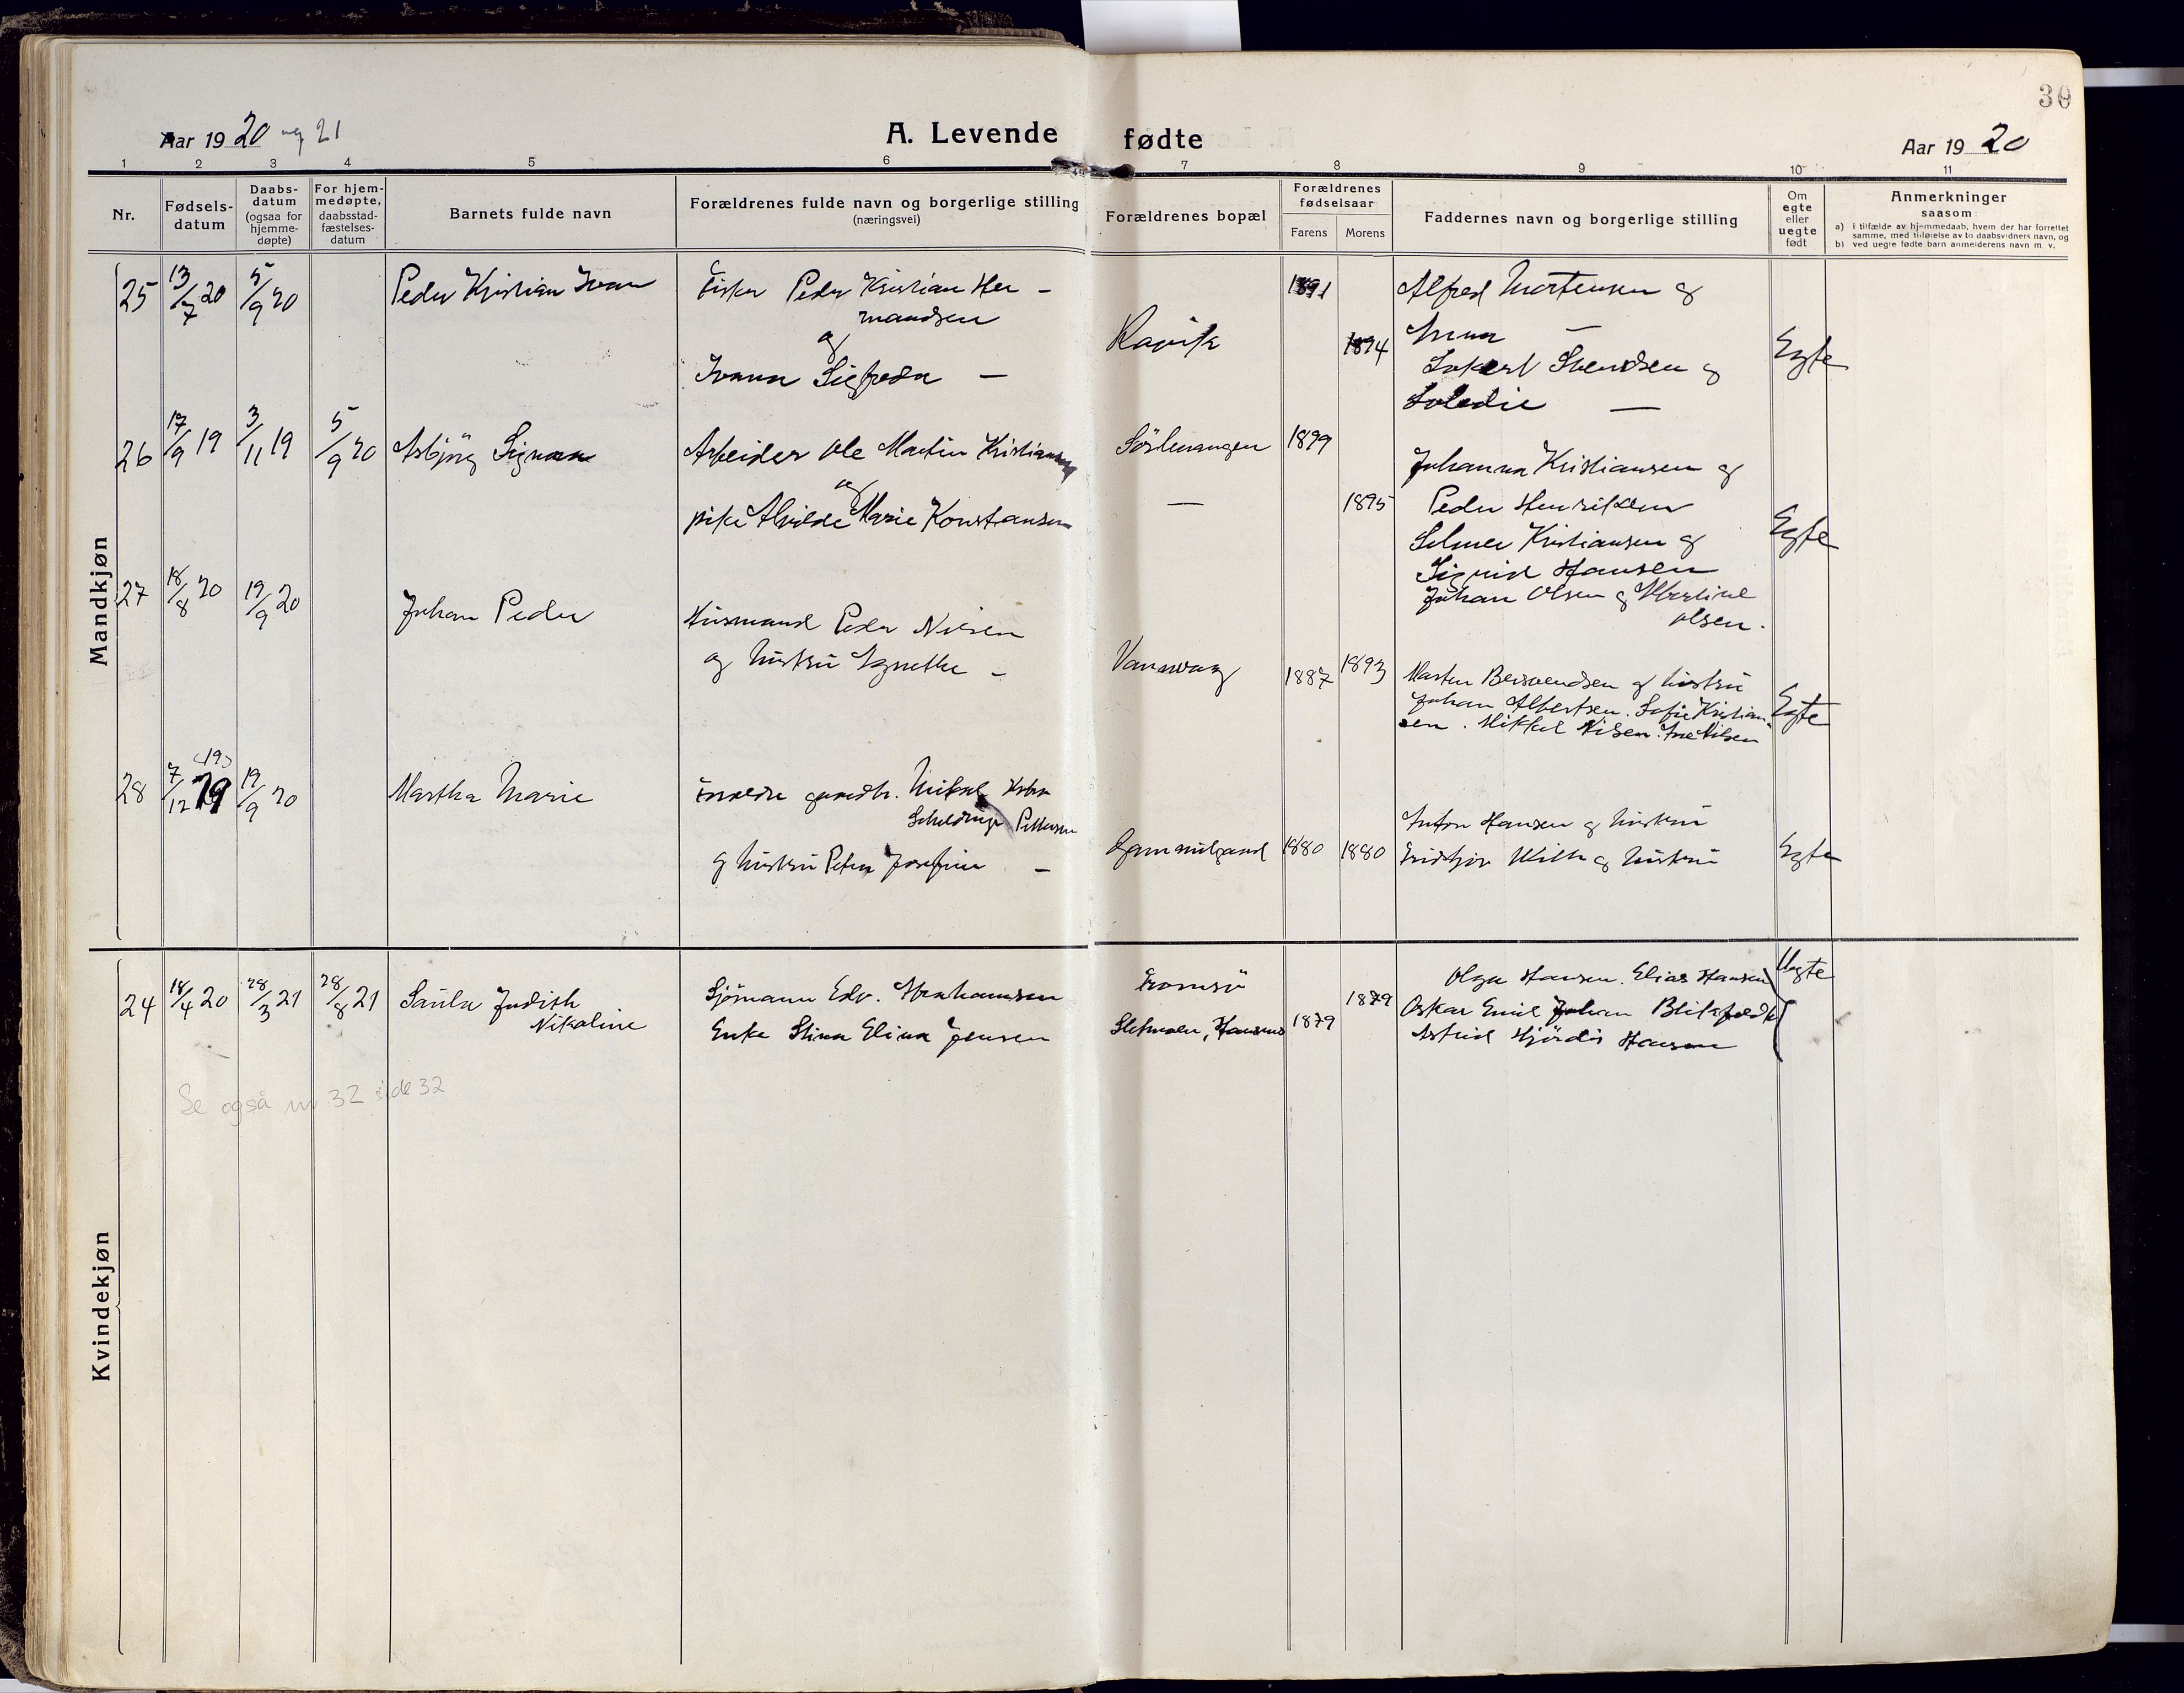 30
Aar 1920 og 21
A. Levende fødte
Aar 1920
1 2 3 4 5 6 7 8 9 10 11
Nr.
Fødsels-
datum
Daabs-
datum
(ogsaa for
hjemme-
døpte)
For hjem-
medøpte,
daabsstad-
fæstelses-
datum
Barnets fulde navn
Forældrenes fulde navn og borgerlige stilling
(næringsvei)
Forældrenes bopæl
Forældrenes
fødselsaar
Farens Morens
Faddernes navn og borgerlige stilling
Om
egte
eller
uegte
født
Anmerkninger
saasom:
a) i tilfælde av hjemmedaab, hvem der har forrettet
samme, med tilføielse av to daabsvidners navn, og
b) ved uegte fødte barn anmelderens navn m. v.
Mandkjøn
25 13/7 20 5/9 20 Peder Kristian Ivan
Fisker Peder Kristian Her-
mandsen
og
Ivanna Sigfreda —
1891
1894
Alfred Mortensen og
Anna —
Svendsen og
—
Egte
26 17/9 19 3/11 19 5/9 20 Asbjörg Signora
Arbeider Ole Martin Kristiansen
og
pike Alvilde Marie Konstansen
Sörlenangen 1899
— 1895
Johanna Kristiansen og
Peder Henriksen
Selmer Kristiansen og
Sigrid Hansen
Johan Olsen og
Olsen.
Egte
27 18/8 20 19/9 20 Johan Peder
Husmand Peder Nilsen
og hustru Agnethe —
Vannvaag 1887 1893
Morten Berntsendsen og hustru
Johan Albertsen. Sofie Kristian-
sen. Mikkel Nilsen. Nilsen
Egte
28 7/12 19 (19) 19/9 20 Martha Marie
Forældre gaardbr. Mikal
Pettersen
og hustru Petra Josefine —
Gammelgaard 1880 1880
Anton Hansen og hustru
Fridtjov og hustru
Egte
Kvindekjøn
24 18/4 20 28/3 21 28/8 21 Saula Judith
Nikoline
Sjömann Edv. Abrahamsen
Enke Stina Elina Jensen
Tromsö
1879
1879
Olga Hansen. Elias Hansen
Oskar Emil Johan Bliksfeldt
Astrid Hjördis Hansen
Uegte
Se også nr 32 side 32